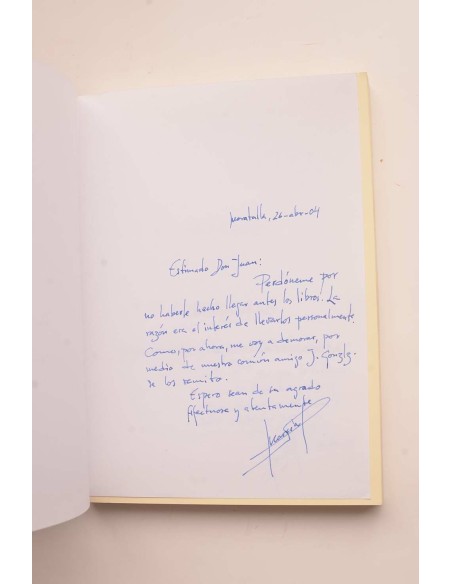 Moratalla, 26-abr-04
Estimado Don Juan:
Perdóneme por
no haberle hecho llegar antes los libros. La
razón era el interés de llevarlos personalmente.
Como, por ahora, me voy a demorar, por
medio de nuestro común amigo J. Gonzlz.
se los remito.
Espero sean de su agrado
Afectuosa y atentamente